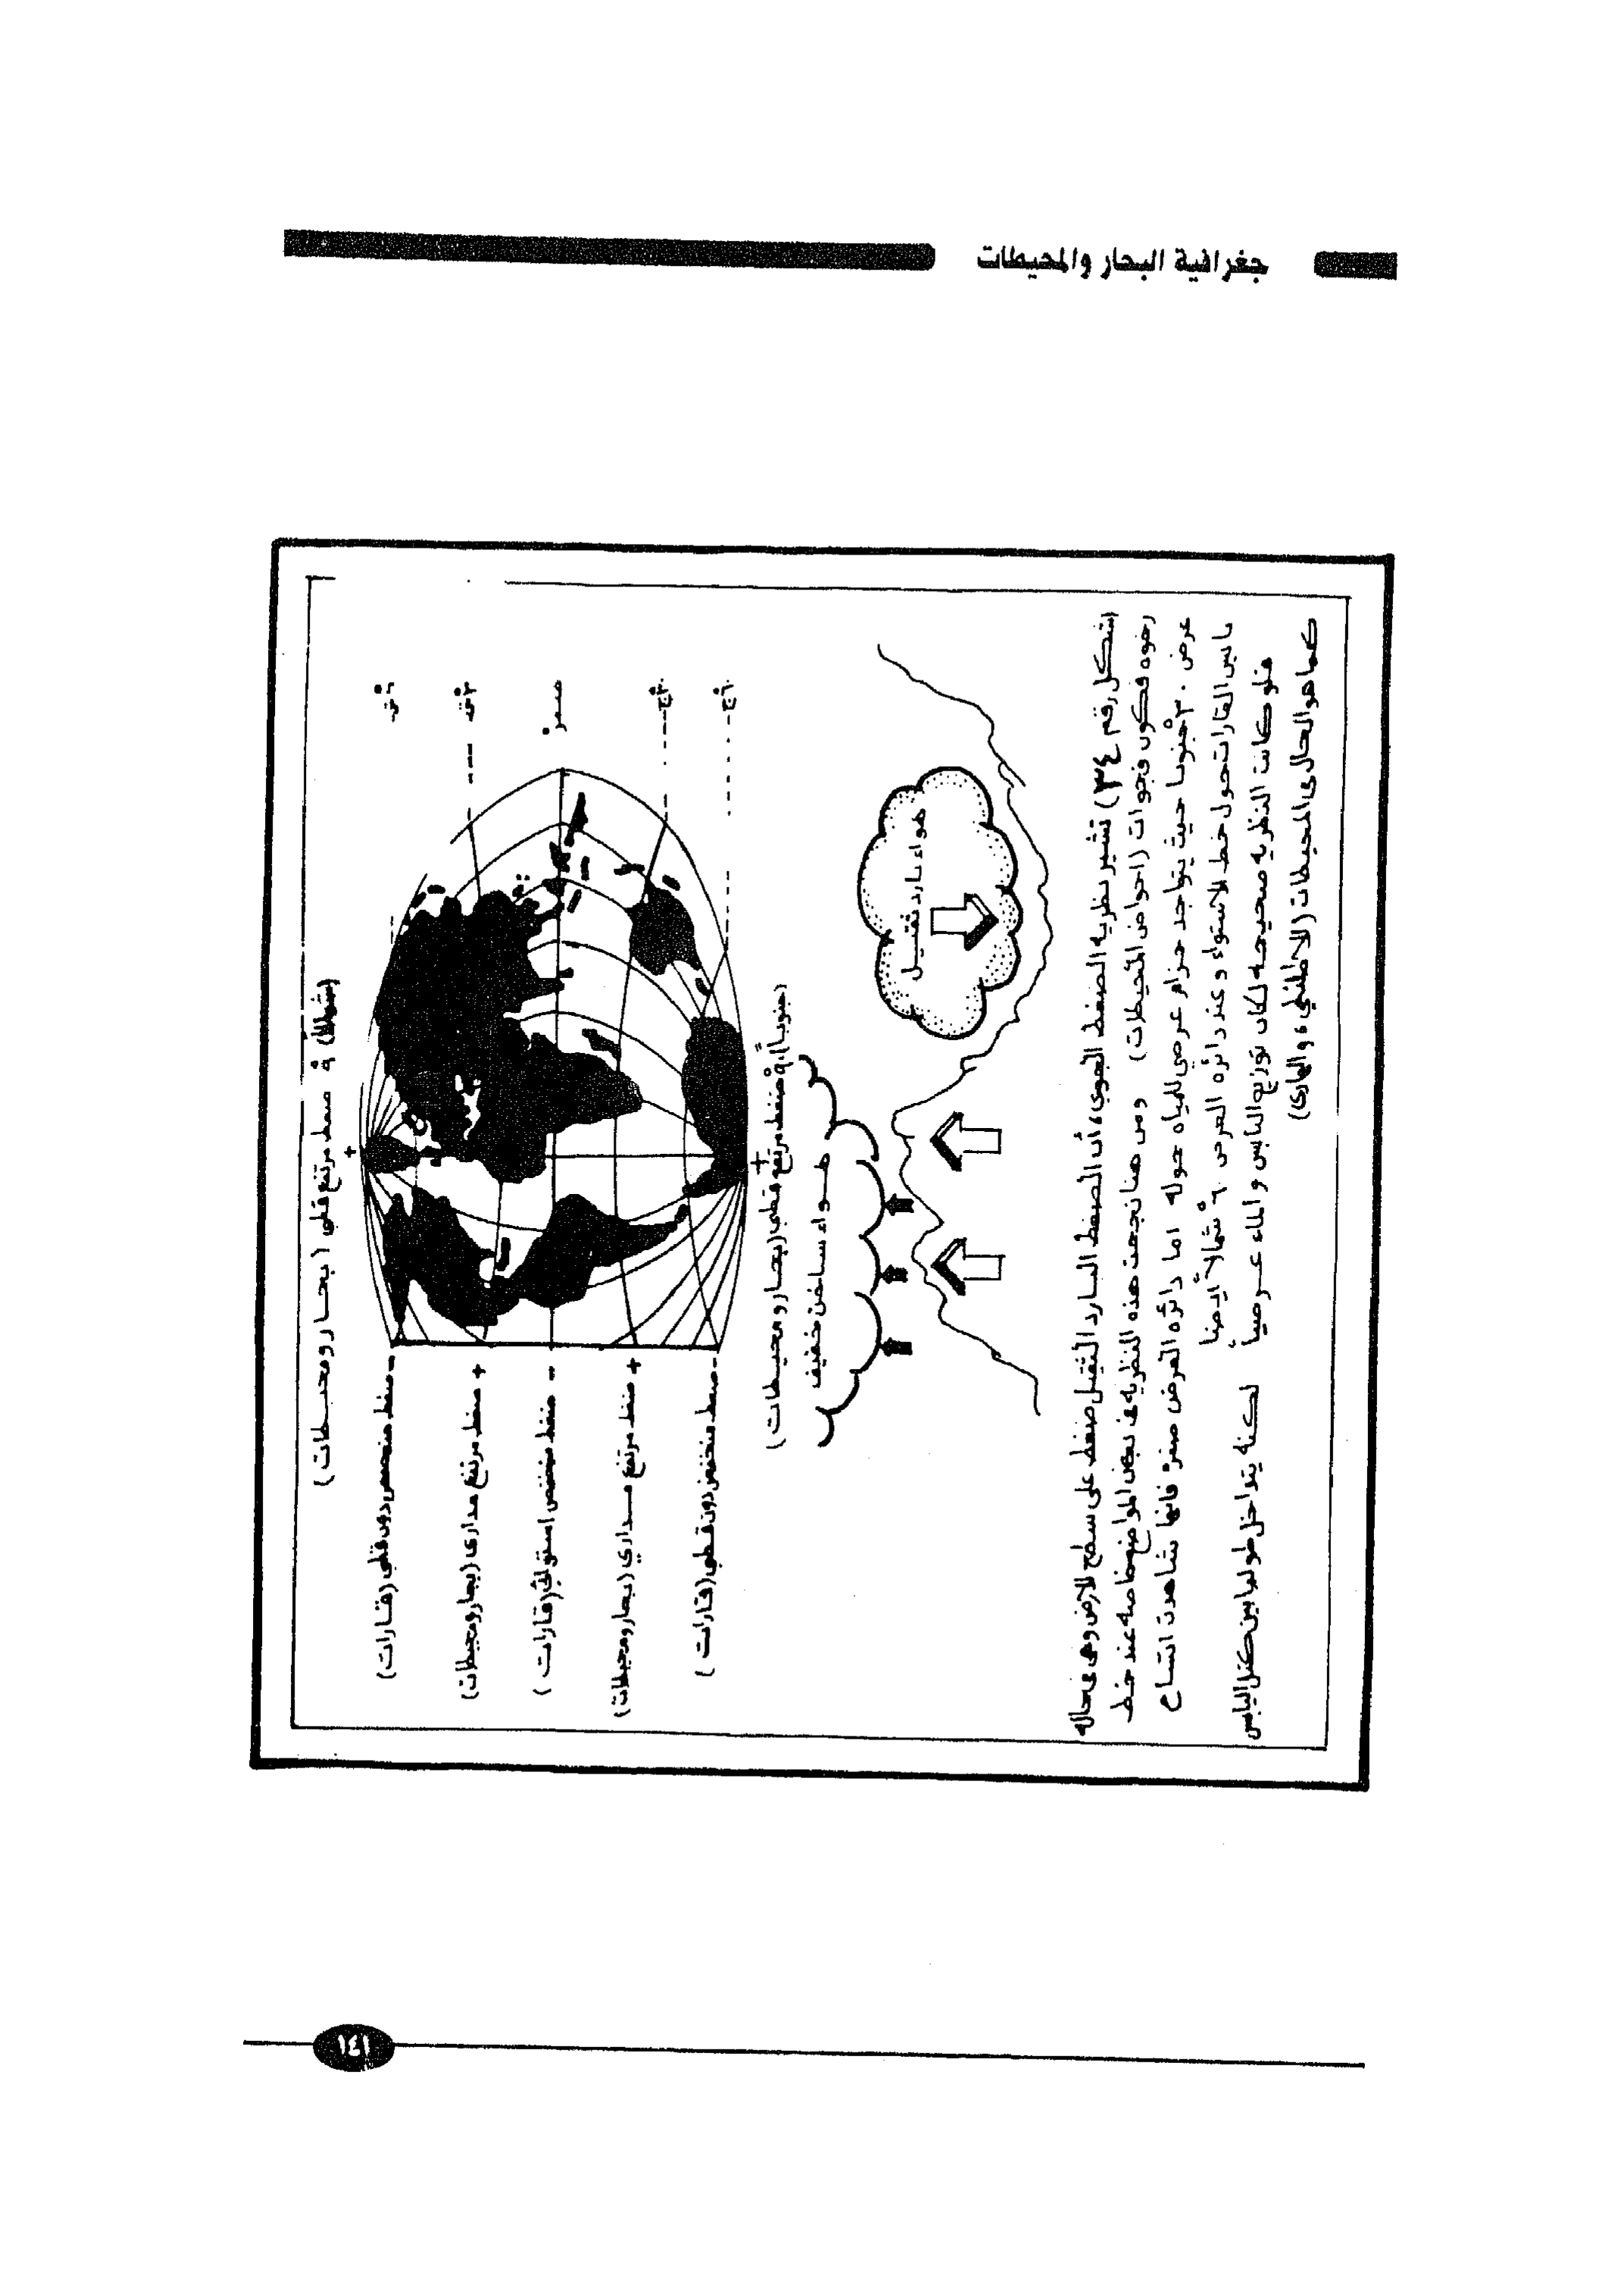 جغرافية البحار والمحيطات
(شمالاً) ٩٠ ضغط مرتفع قطبي (بحار ومحيطات)
+
٦٠ش
- ضغط منخفض دون قطبي (قارات)
٣٠ش
+ ضغط مرتفع مداري (بحار ومحيطات)
صفر
- ضغط منخفض استوائي (قارات)
٣٠ج
+ ضغط مرتفع مداري (بحار ومحيطات)
٦٠ج
- ضغط منخفض دون قطبي (قارات)
+
(جنوباً) ٩٠ ضغط مرتفع قطبي (بحار ومحيطات)
هواء ساخن خفيف
هواء بارد ثقيل
(شكل رقم ٣٤) تشير نظرية الضغط الجوي، أن الضغط البارد الثقيل ضغط على سطح الارض وهي في حاله
رخوه فكون فجوات (احواض المحيطات) ومن هنا نجحت هذه النظريه في بعض المواضع خاصه عند خط
عرض ٣٠ جنوبا حيث يتواجد حزام عرضي للمياه حوله اما دائره العرض صفر فانها شاهدت اتساع
يابس القارات حول خط الاستواء وعند دائره العرض ٦٠ شمالاً أيضاً
فلو كانت النظريه صحيحه لكان توزيع اليابس والماء عرضياً لكنه يتداخل طوليا بين كتل اليابس
كما هو الحال في المحيطات (الاطلنطي، والهادي)
١٤١